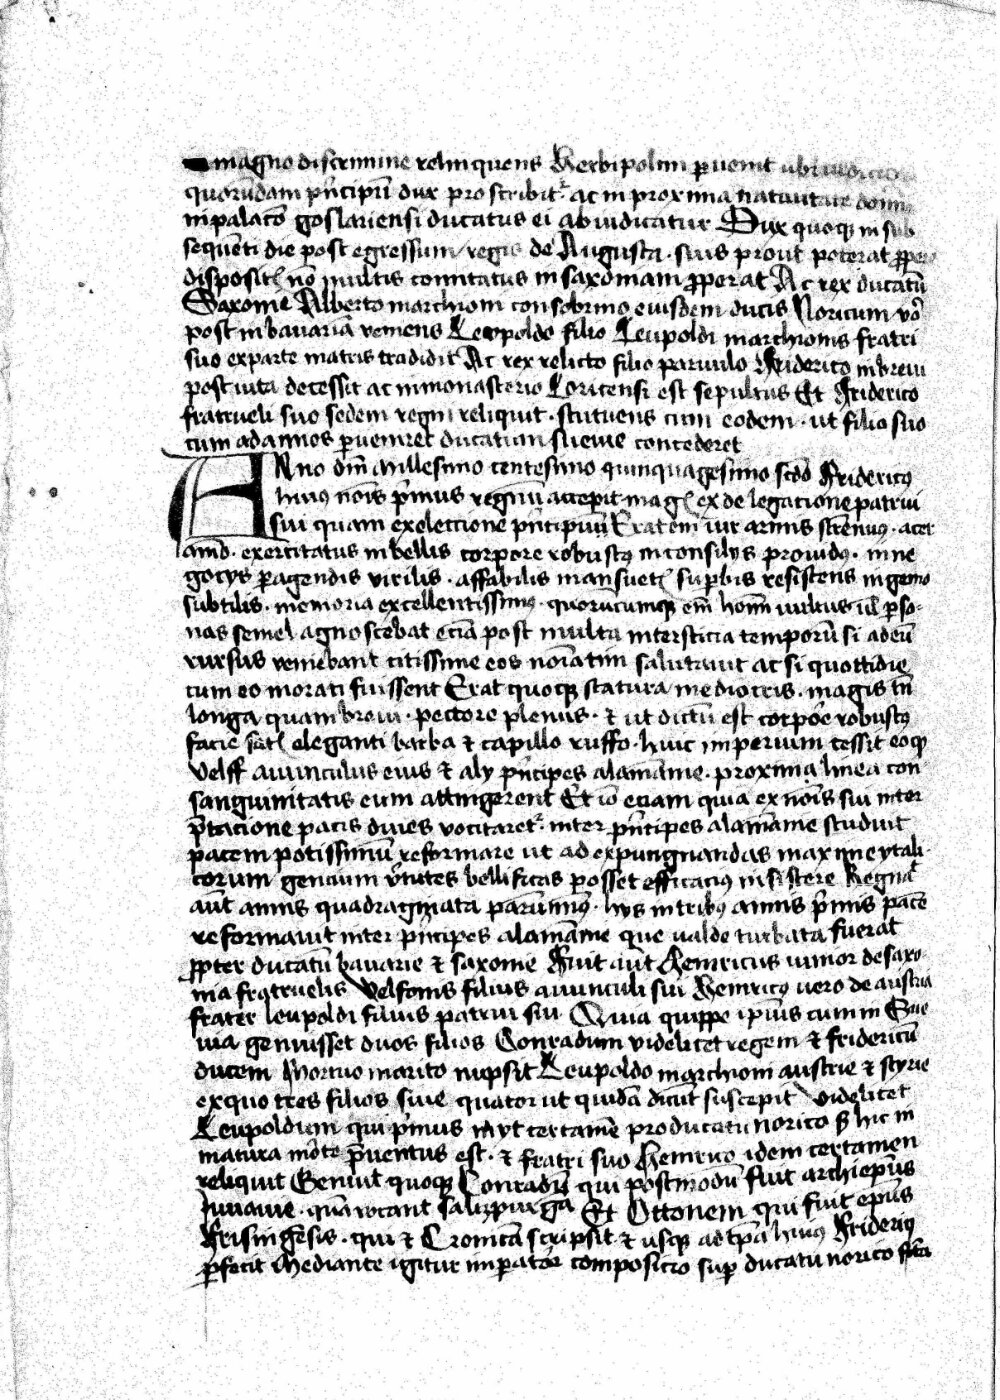 magno discrimine relinquens Herbipolim peruenit ubi iudicio
quorūdam pⁱncipū dux proscribitᷣ ac in proxima natiuitate domini
in palaco͞ goslariensi ducatus ei abiudicatur Dux quoqꝫ in sub
sequēti die post egressum regis de Augusta suis prout poterat ꝓpere
dispositꝭ nō multis comitatus in saxoniam ꝓperat Ac rex ducatū
Saxonie Alberto marchioni consobrino eiusdem ducis Noricum vō
post in bauariā veniens Leopoldo filio Leupoldi marchionis fratri
suo exparte matris tradidit Ac rex relicto filio paruulo Friderico in breui
post uita decessit ac in monasterio Loricensi est sepultus Et Friderico
fratrueli suo sedem regni reliquit statuens cum eodem ut filio suo
cum ad annos ꝑueniret ducatum sueuie concederet
Anno dn̄i millesimo centesimo quinquagesimo scd̄o Fridericꝰ
huius nōis pⁱmus regnū accepit magꝭ ex delegacione patrui
sui quam ex eleccione pⁱncipum Erat em̄ uir armis strenuꝰ acer
animo exercitatus in bellis corpore robustꝰ in consilijs prouidꝰ in ne
gocijs ꝑagendis virilis affabilis mansuetꝭ suꝑbis resistens ingenio
subtilis memoria excellentissimꝰ quorūcumqꝫ em̄ homī vultus ul̄ ꝑso-
nas semel agnoscebat eciā post multa intersticia temporū si ad eū
rursus veniebant citissime eos nōiatim salutauit ac si quottidie
cum eo morati fuissent Erat quoqꝫ statura mediocris magis tn̄
longa quam breui pectore plenus ⁊ ut dictū est corpōe robustꝰ
facie satꝭ eleganti barba ⁊ capillo ruffo huic imperium cessit eoqꝫ
Velff auunculus eius ⁊ alij pⁱncipes alamānie proxima linea con
sanguinitatis eum attingerent Et iō eciam quia ex nōis sui inter
p̄tacione pacis diues vocitaretᷣ inter pⁱncipes alamānie studuit
pacem potissimū reformare ut ad expungnandas maxime ytali-
corum gencium v̄tutes bellificas posset efficaciꝰ insistere Regnāt
aūt annis quadraginta parū minꝰ hijs in tribꝰ annis pⁱmis pacē
reformauit inter pⁱncipes alamānie que ualde turbata fuerat
ꝓpter ducatū bauarie ⁊ saxonie Fuit aūt Heinricus iunior de saxo-
nia fratruelis Velfonis filius auunculi sui Heinricꝰ uero de austria
frater leupoldi filius patrui sui Quia quippe ipīus cum in Sue
uia genuisset duos filios Conradum videlicet regem ⁊ fridericū
ducem Mortuo marito nupsit Leupoldo marchioni austrie ⁊ styrie
ex quo tres filios siue quatuor ut quidā dicūt suscepit videlicet
Leupoldum qui pⁱmus inijt certamē pro ducatu norico sꝫ hic in
matura mōte p̄uentus est ⁊ fratri suo Heinrico idem certamen
reliquit Genuit quoqꝫ Conradū qui postmodū fuit archiep̄us
Iuuauie quā vocant salczpurga Et Ottonem qui fuit ep̄us
Frisingēsis qui ⁊ Cronicā scripsit ⁊ usqꝫ ad tꝑa huiꝰ Fridericꝰ
ꝑfecit Mediante igitur imꝑatōr composicio suꝑ ducatu norico